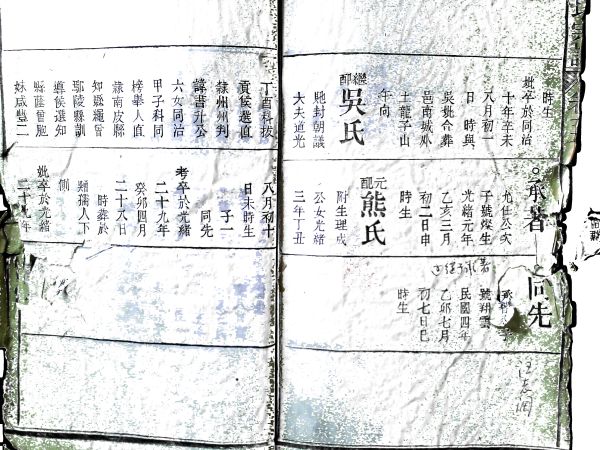 時生
妣卒於同治
十年辛未
八月初一
日 時與
吳妣合葬
邑南城外
土龍子山
午向
繼配吳氏
馳封朝議
大夫道光
丁酉科拔
貢候選直
隸州州判
諱書升公
六女同治
甲子科同
榜舉人直
隸南皮縣
知縣繩曾
鄢陵縣訓
導候選知
縣薩曾胞
妹咸豐二
承著
允仕公次
子號燦生
光緒元年
乙亥三月
初二日申
時生
元配熊氏
附生理成
公女光緒
三年丁丑
八月初十
日未時生
子一
同先
考卒於光緒
二十九年
癸卯四月
二十八日
時葬於
孺人下
側
妣卒於光緒
二十九年
同先
號翔雲
民國四年
乙卯七月
初七日巳
時生